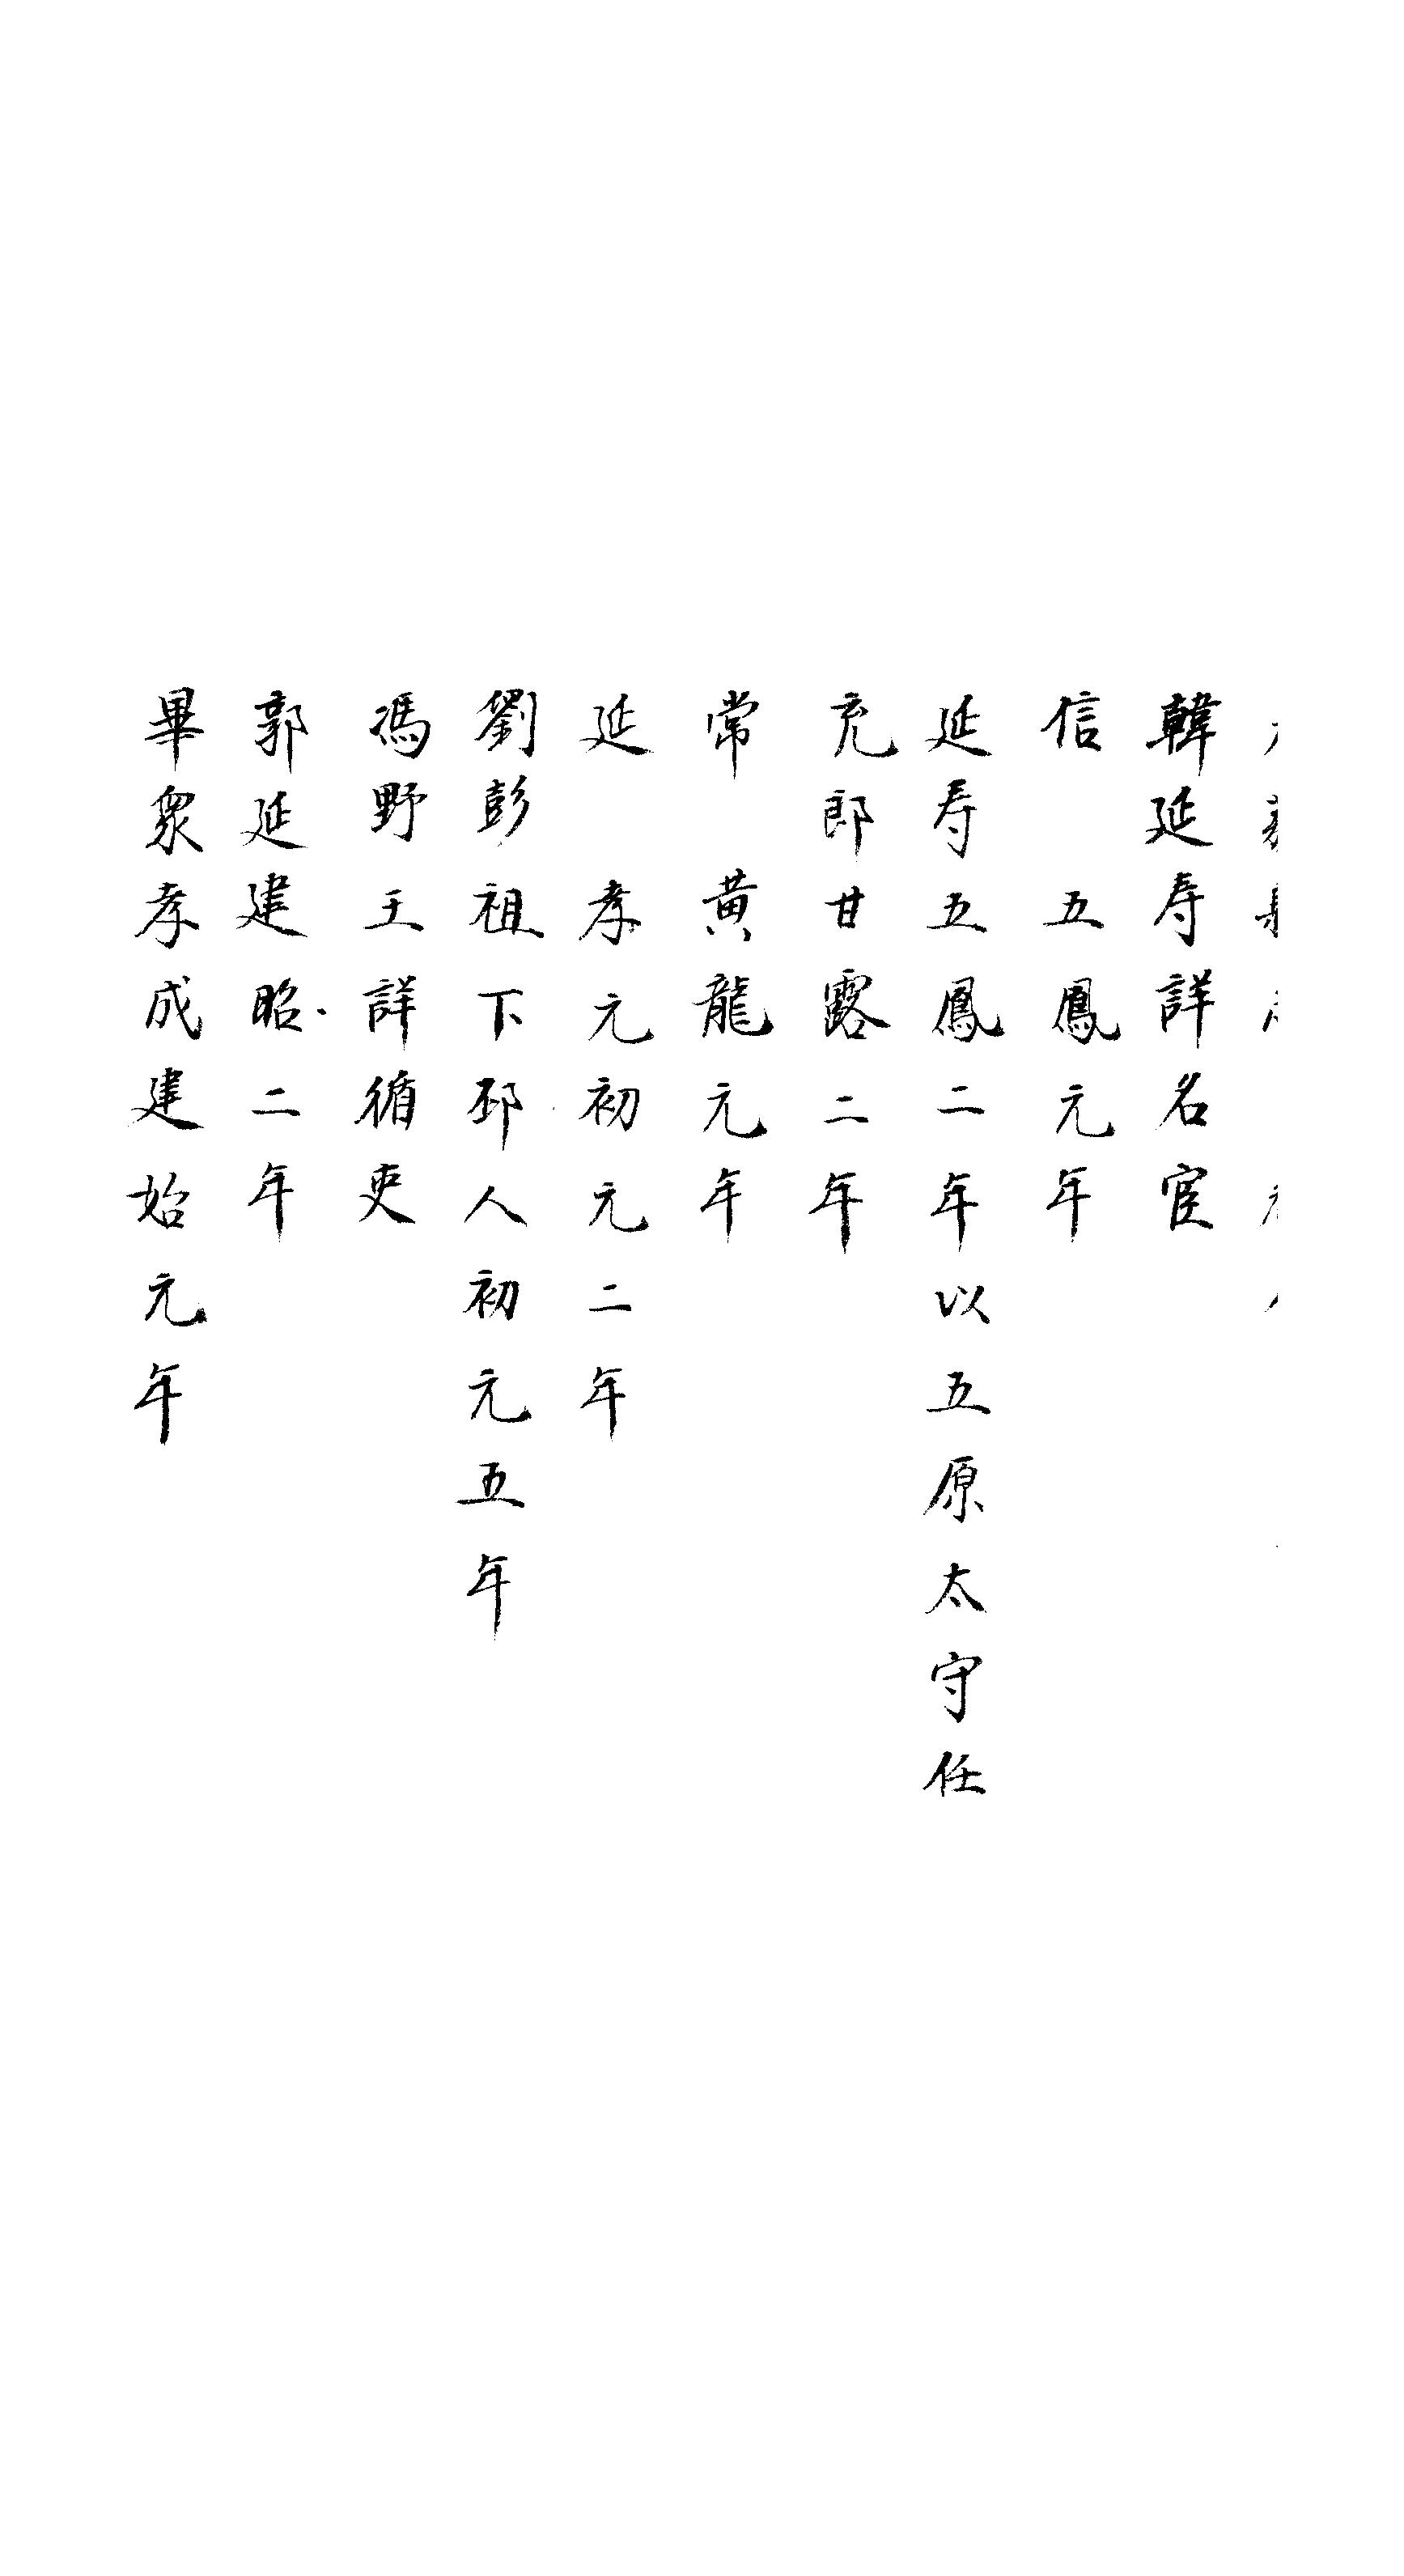 韓延寿詳名宦
信　五鳳元年
延寿五鳳二年以五原太守任
充郎甘露二年
常　黄龍元年
延　孝元初元二年
劉彭祖下邳人初元五年
馮野王詳循吏
郭延建昭二年
畢衆孝成建始元年